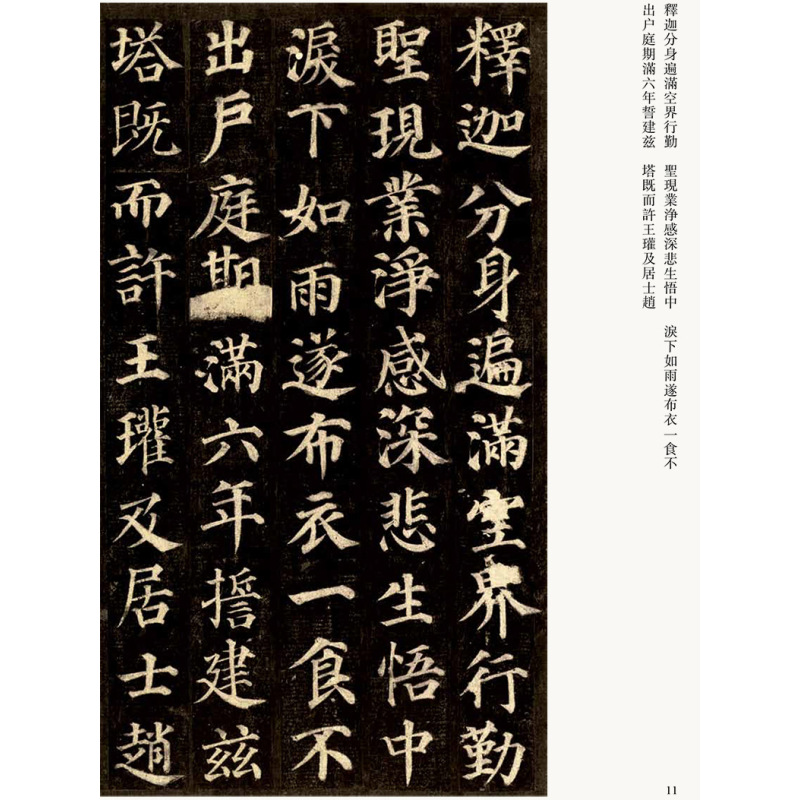 釋迦分身遍滿空界行勤　聖現業浄感深悲生悟中　淚下如雨遂布衣一食不
出户庭期滿六年誓建兹　塔既而許王瓘及居士趙
釋迦分身遍滿空界行勤
聖現業淨感深悲生悟中
淚下如雨遂布衣一食不
出戶庭期滿六年誓建茲
塔既而許王瓘及居士趙
11